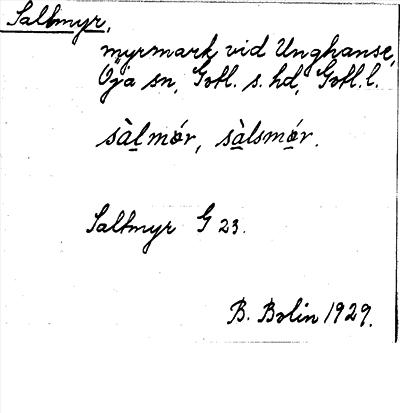 Saltmyr,
myrmark vid Unghanse,
Öja sn, Gotl. s. hd, Gotl. l.
sàlmór, sàlsmór.
Saltmyr G 23.
B. Bolin 1929.